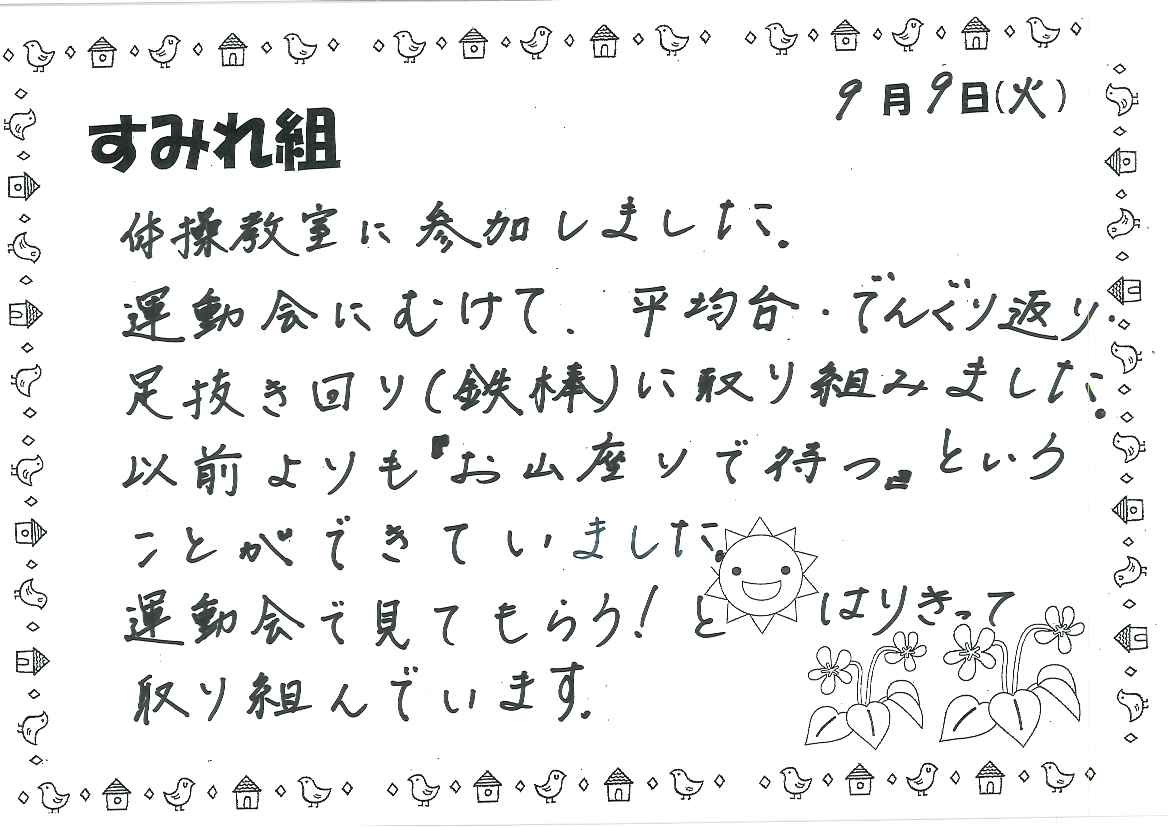 9月9日(火)
すみれ組
体操教室に参加しました。
運動会にむけて、平均台・でんぐり返り・
足抜き回り(鉄棒)に取り組みました。
以前よりも『お山座りで待つ』という
ことができていました。
運動会で見てもらう!と はりきって
取り組んでいます。